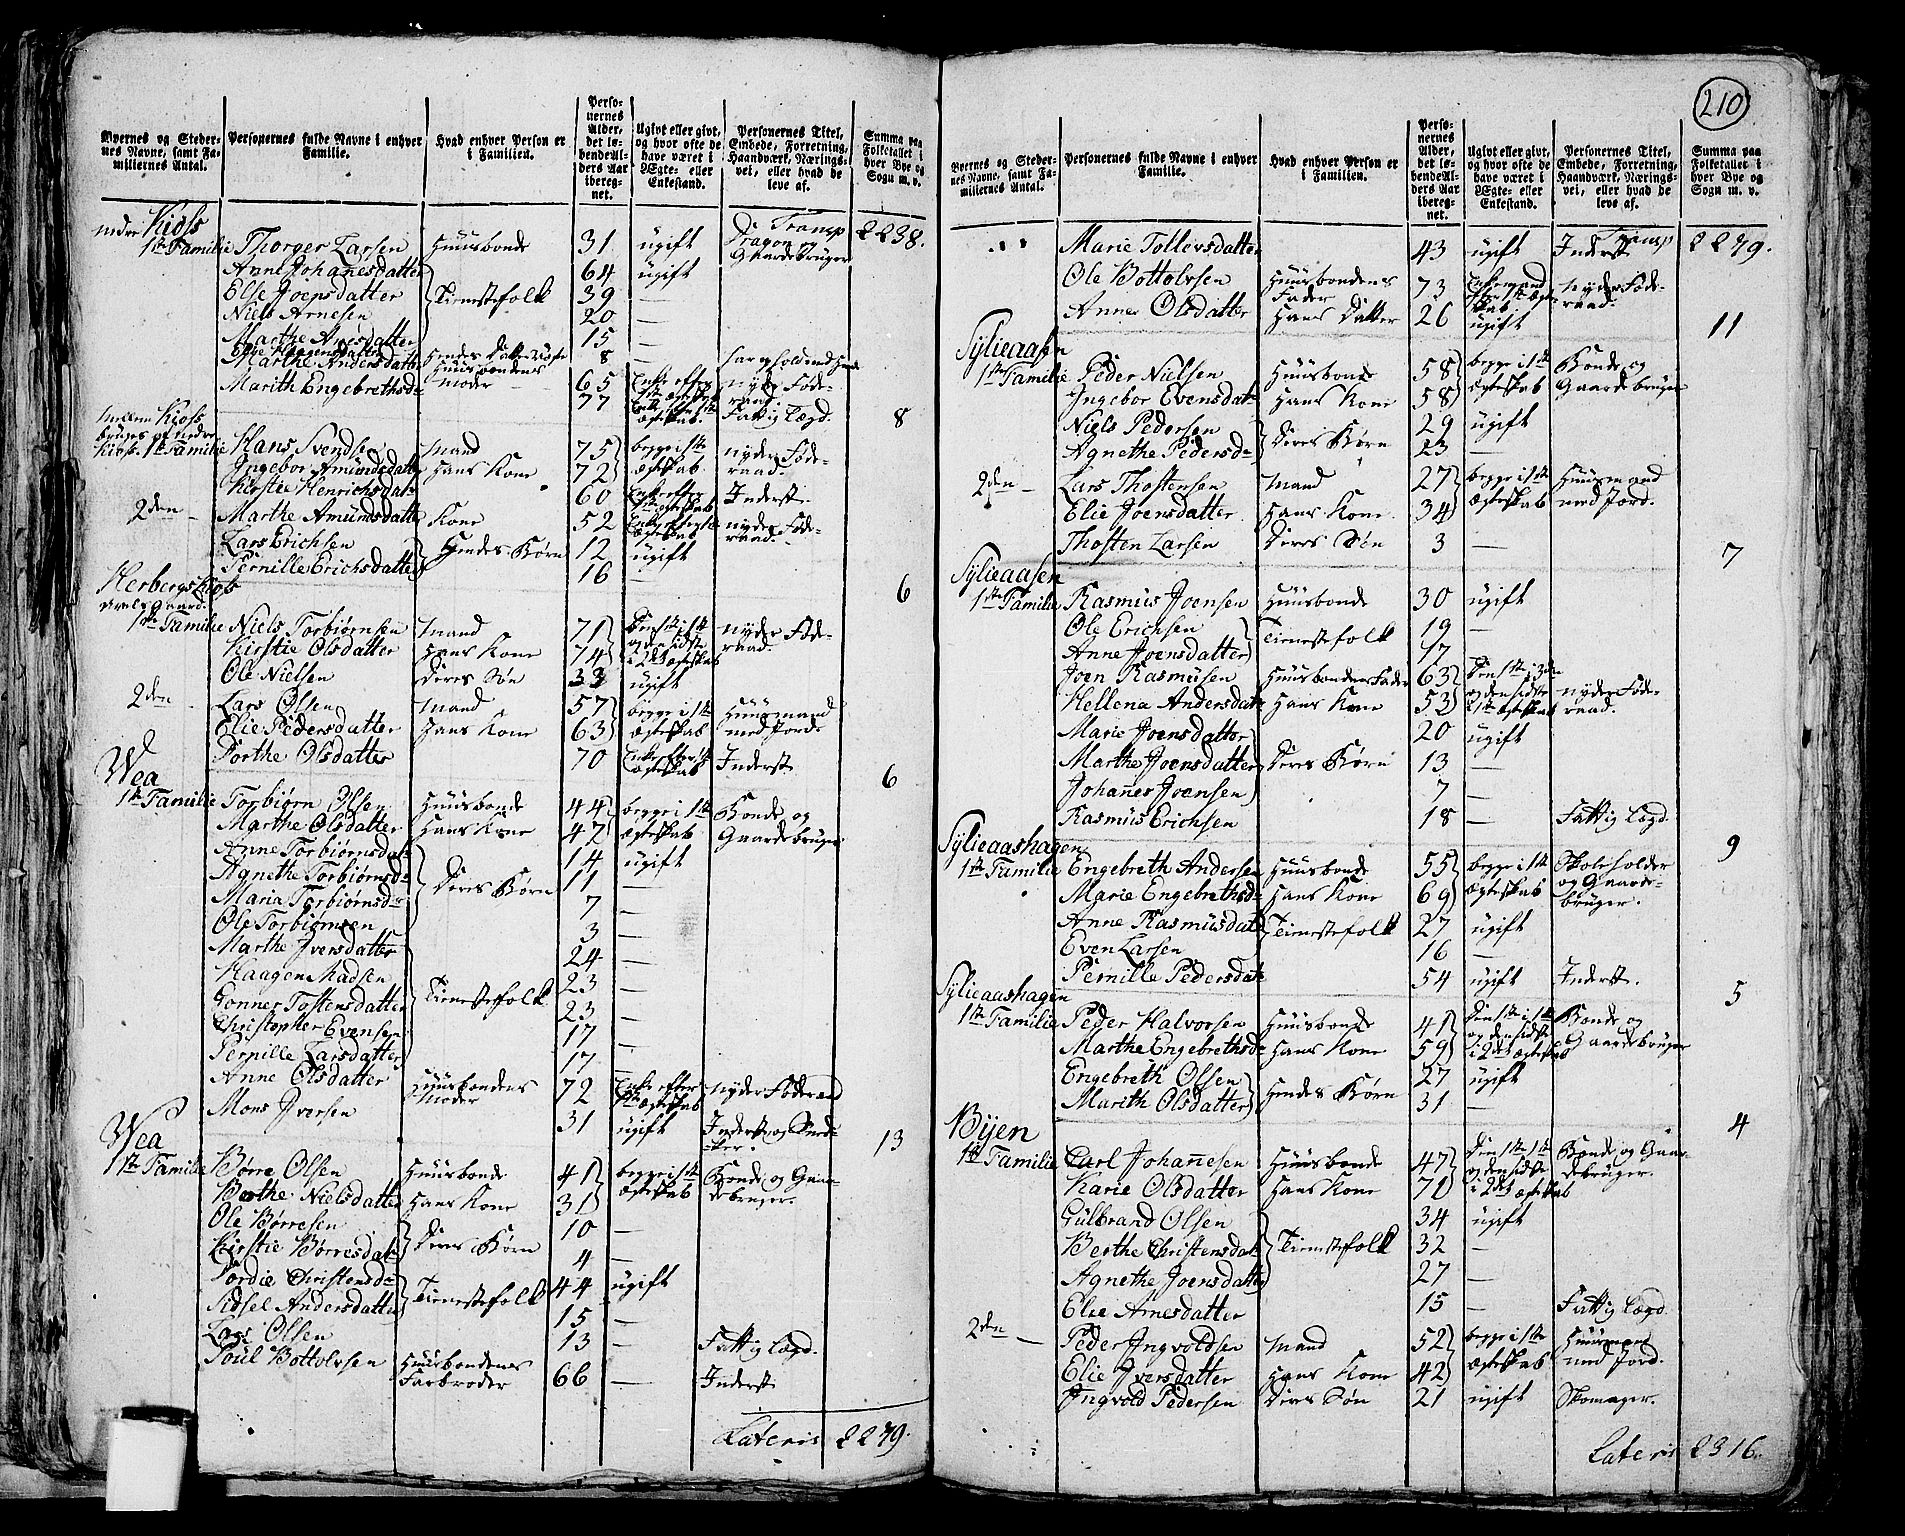 Byernes og Stedernes Navne, samt Familiernes Antal. | Personernes fulde Navne i enhver Familie. | Hvad enhver Person er i Familien. | Personernes Alder, det løbende Alders Aar iberegnet. | Ugivt eller givt, og hvor ofte de have været i Ægte- eller Enkestand. | Personernes Titel, Embede, Forretning, Haandværk, Næringsvei, eller hvad de leve af. | Summa paa Folketallet i hver Bye og Sogn m. v.
nedre Kiøss Transp 2238.
1ste Familie Thorger Larsen Huusbonde 31 ugift Dragon Gaardebruger
Anne Johanesdatter 64 ugift
Else Joensdatter Tienestefolk 39 —
Niels Arnesen 20 —
Marthe Arnesdatter 15 —
8 —
Marthe Andersdatter Huusbondens Moder 65 nyder Føderaad.
Marithe Engebrethsd 77 Fattig Lægd. 8
mellem Kioss bruges af nedre
Kioss. 1ste Familie Hans Svendsen Mand 75 begge i 1ste nyder Føde-
Ingebor Amundsdatter Hans Kone 72 ægteskab raad.
Kirstie Henrichsdatt 60 Enke efter Inderste
2den Marthe Amundsdatter Kone 52 nyder Føderaad.
Lars Erichsen Hendes Børn 12 ugift
Pernille Erichsdatter 16 —
Herbergs Kioss 6
1ste Familie Niels Torbiørnsen Mand 71 Den 1ste i 1ste nyder Føde-
Kirstie Olsdatter Hans Kone 74 og den sidste i 2det ægteskab raad.
Ole Nielsen Deres Søn 33 ugift
2den Lars Olsen Mand 57 begge i 1ste Huusmand
Elie Pedersdatter Hans Kone 63 ægteskab med Jord
Dorthe Olsdatter 70 Enke efter 1ste ægteskab Inderste
Wea 6
1ste Familie Torbiørn Olsen Huusbonde 44 begge i 1ste Bonde og
Marthe Olsdatter Hans Kone 42 ægteskab Gaardebruger
Anne Torbiørnsdatt 14 ugift
Agnethe Torbiørnsd Deres Børn 11 —
Maria Torbiørnsd 7 —
Ole Torbiørnsen 3 —
Marthe Iversdatter 24 —
Haagen Madsen 23 —
Gonner Tostensdatter Tienestefolk 23 —
Christopher Evensen 17 —
Pernille Larsdatter 17 —
Anne Olsdatter Huusbondens Moder 72 Enke efter 1ste ægteskab nyder Føderaad
Mons Iversen 31 ugift Inderste og
Wea 13
1ste Familie Børre Olsen Huusbonde 41 begge i 1ste Bonde og Gaar-
Berthe Nielsdatter Hans Kone 31 ægteskab debruger.
Ole Børresen Deres Børn 10 —
Kirstie Børresdatt 4 —
Tordie Christensd Tienestefolk 44 ugift
Sidsel Andersdatter 15 —
Lars Olsen 13 — Fattig Lægd.
Poul Bottolvsen Huusbondens Farbroder 66 — Inderste
Lateris 2279.
210
Byernes og Stedernes Navne, samt Familiernes Antal. | Personernes fulde Navne i enhver Familie. | Hvad enhver Person er i Familien. | Personernes Alder, det løbende Alders Aar iberegnet. | Ugivt eller givt, og hvor ofte de have været i Ægte- eller Enkestand. | Personernes Titel, Embede, Forretning, Haandværk, Næringsvei, eller hvad de leve af. | Summa paa Folketallet i hver Bye og Sogn m. v.
Transp 2279.
Marie Tollevsdatter 43 ugift Inderste
Ole Bottolvsen Huusbondens Fader 73 Enkemand efter 1ste Ægteskab nyder Føderaad.
Anne Olsdatter Hans Datter 26 ugift 11
Sylieaasen
1ste Familie Peder Nielsen Huusbonde 58 begge i 1ste Bonde og
Ingebor Evensdatt Hans Kone 58 ægteskab Gaardebruger
Niels Pedersen Deres Børn 29 ugift
Agnethe Pedersd 23 —
2den Lars Thostensen Mand 27 begge i 1ste Huusmand
Elie Joensdatter Hans Kone 34 ægteskab med Jord.
Thosten Larsen Deres Søn 3 — 7
Sylieaasen
1ste Familie Rasmus Joensen Huusbonde 30 ugift
Ole Erichsen Tienestefolk 19 —
Anne Joensdatter 17 —
Joen Rasmusen Huusbondens Fader 63 Den 1ste i 3die nyder Føde-
Hellena Andersdatt Hans Kone 53 og den sidste i 1ste ægteskab raad.
Marie Joensdatter 20 ugift
Marthe Joensdatter Deres Børn 13 —
Johannes Joensen 7 —
Rasmus Erichsen 18 — Fattig Lægd.
Sylieaashagen 9
1ste Familie Engebreth Andersen Huusbonde 55 begge i 1ste Skoleholder
Marie Engebrethsd Hans Kone 69 ægteskab og Gaardebruger.
Anne Rasmusdatt Tienestefolk 27 ugift
Even Larsen 16 —
Pernille Pedersdatt 54 ugift Inderste.
Sylieaashagen 5
1ste Familie Peder Halvorsen Huusbonde 41 Den 1ste i 1ste Bonde og
Marthe Engebrethsd Hans Kone 59 og den sidste i 2det ægteskab Gaardebruger
Engebreth Olsen Hendes Børn 27 ugift
Marith Olsdatter 31 —
Byen 4
1ste Familie Carl Johannesen Huusbonde 47 Den 1ste i 1ste Bonde og Gaar-
Karie Olsdatter Hans Kone 71 og den sidste i 2det ægteskab debruger.
Gulbrand Olsen 34 ugift
Berthe Christensdatt Tienestefolk 32 —
Agnethe Joensdatter 27 —
Elie Arnesdatter 15 — Fattig Lægd
2den Peder Ingvoldsen Mand 52 begge i 1ste Huusmand
Elie Iversdatter Hans Kone 42 ægteskab med Jord.
Ingvold Pedersen Deres Søn 21 ugift Skomager.
Lateris 2316.